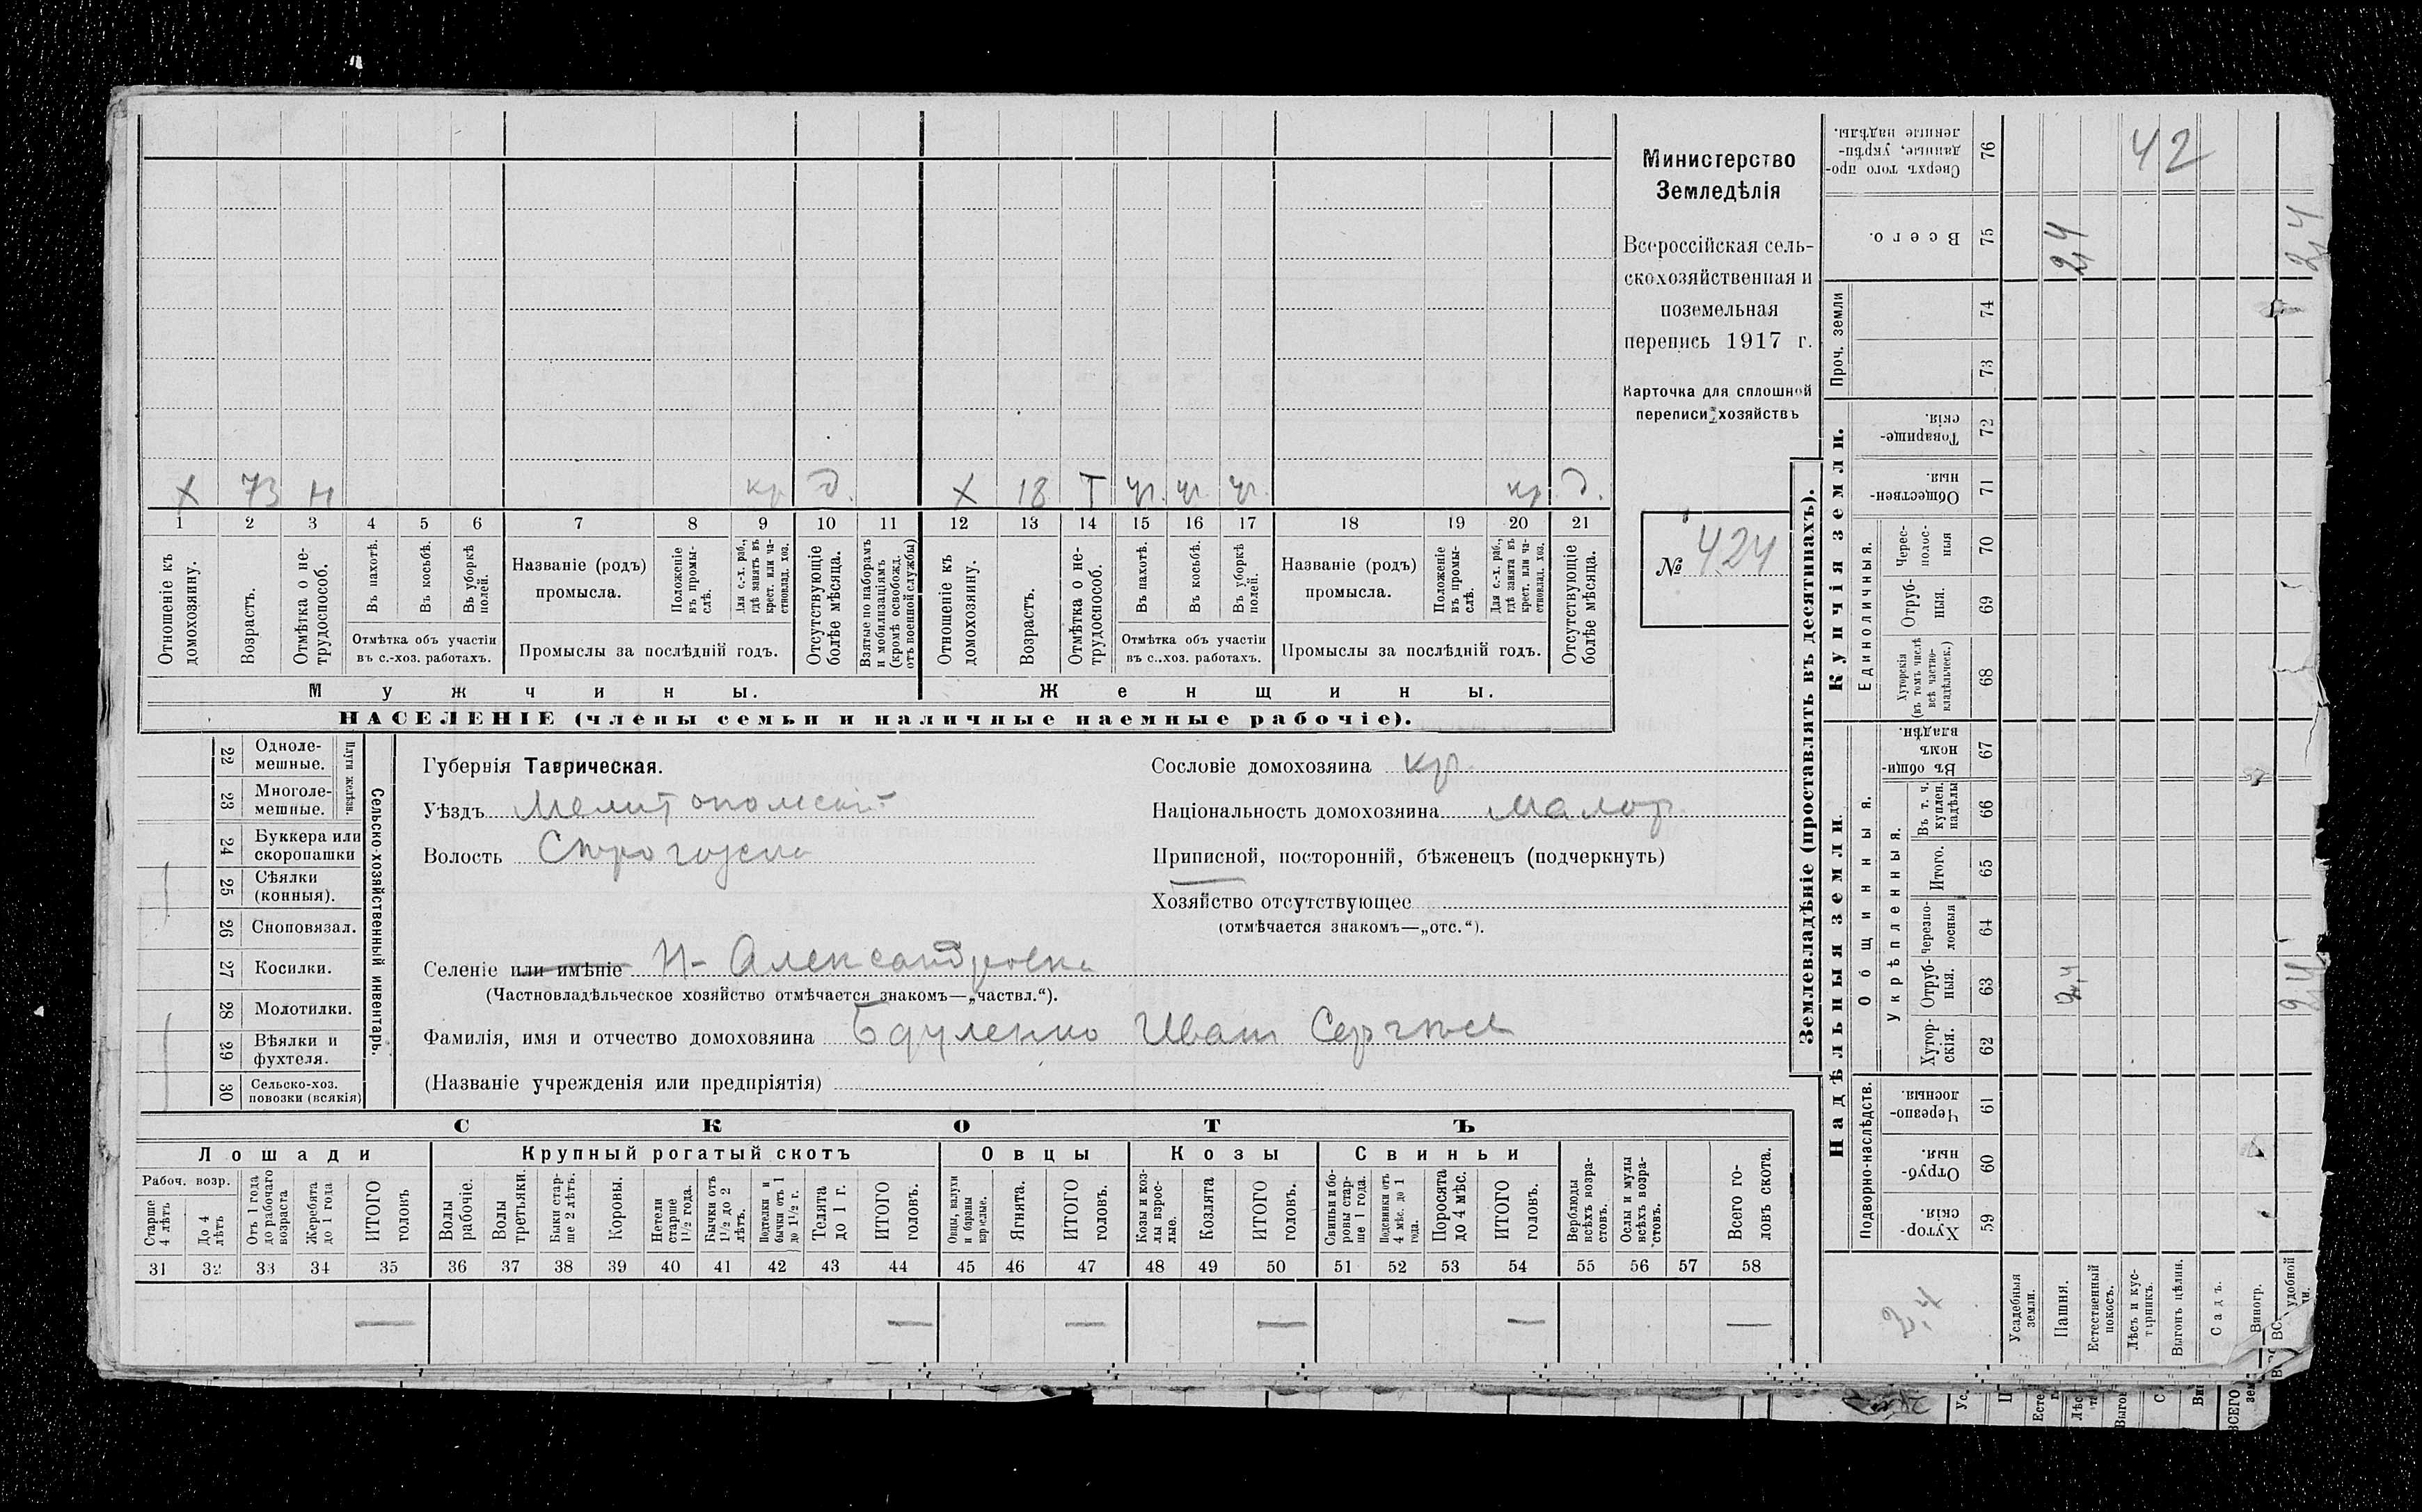 Министерство
Земледѣлія
Всероссійская сель-
скохозяйственная и
поземельная
перепись 1917 г.
Карточка для сплошной
переписи хозяйствъ
№ 424
Х 73 Н кр д. Х 18 Т чл. чл. чл. кр. д.
1 2 3 4 5 6 7 8 9 10 11 12 13 14 15 16 17 18 19 20 21
Отношеніе къ домохозяину.
Возрастъ.
Отмѣтка о не-трудоспособ.
Въ пахотѣ.
Въ косьбѣ.
Въ уборкѣ полей.
Отмѣтка объ участіи
въ с.-хоз. работахъ.
Названіе (родъ)
промысла.
Положеніе въ промы-слѣ.
Для с.-х. раб., гдѣ занятъ въ крест. или ча-стновлад. хоз.
Промыслы за послѣдній годъ.
Отсутствующіе болѣе мѣсяца.
Взятые по наборамъ и мобилизаціямъ (кромѣ освобожд. отъ военной службы)
Отношеніе къ домохозяину.
Возрастъ.
Отмѣтка о не-трудоспособ.
Въ пахотѣ.
Въ косьбѣ.
Въ уборкѣ полей.
Отмѣтка объ участіи
въ с.-хоз. работахъ.
Названіе (родъ)
промысла.
Положеніе въ промы-слѣ.
Для с.-х. раб., гдѣ занята въ крест. или ча-стновлад. хоз.
Промыслы за послѣдній годъ.
Отсутствующіе болѣе мѣсяца.
Мужчины.
Женщины.
НАСЕЛЕНІЕ (члены семьи и наличные наемные рабочіе).
Сельско-хозяйственный инвентарь.
Плуги желѣзн.
22 Одноле-мешные.
23 Многоле-мешные.
24 Буккера или скоропашки
25 Сѣялки (конныя).
26 Сноповязал.
27 Косилки.
28 Молотилки.
29 Вѣялки и фухтеля.
30 Сельско-хоз. повозки (всякія)
Губернія Таврическая.
Уѣздъ Мелитопольскій
Волость
Селеніе или имѣніе Н-Александровка
(Частновладѣльческое хозяйство отмѣчается знакомъ—„частвл.“).
Фамилія, имя и отчество домохозяина Иван Сергѣев
(Названіе учрежденія или предпріятія)
Сословіе домохозяина кр.
Національность домохозяина малор.
Приписной, посторонній, бѣженецъ (подчеркнуть)
Хозяйство отсутствующее
(отмѣчается знакомъ—„отс.“).
СКОТЪ
Лошади
Крупный рогатый скотъ
Овцы
Козы
Свиньи
Рабоч. возр.
Старше 4 лѣтъ
До 4 лѣтъ
Отъ 1 года до рабочаго возраста
Жеребята до 1 года
ИТОГО головъ
Волы рабочіе.
Волы третьяки.
Быки стар-ше 2 лѣтъ.
Коровы.
Нетели старше 1½ года.
Бычки отъ 1½ до 2 лѣтъ.
Подтелки и бычки отъ 1 до 1½ г.
Телята до 1 г.
ИТОГО головъ.
Овцы, валухи и бараны взрослые.
Ягнята.
ИТОГО головъ.
Козы и коз-лы взрос-лые.
Козлята
ИТОГО головъ.
Свиньи и бо-ровы стар-ше 1 года.
Подсвинки отъ 4 мѣс. до 1 года.
Поросята до 4 мѣс.
ИТОГО головъ.
Верблюды всѣхъ возра-стовъ.
Ослы и мулы всѣхъ возра-стовъ.
Всего го-ловъ скота.
31 32 33 34 35 36 37 38 39 40 41 42 43 44 45 46 47 48 49 50 51 52 53 54 55 56 57 58
— — — — — —
Землевладѣніе (проставлять въ десятинахъ).
Надѣльныя земли.
Купчія земли.
Проч. земли
Подворно-наслѣдств.
Общинныя.
Укрѣпленныя.
Единоличныя.
Хутор-скія. 59
Отруб-ныя. 60
Черезпо-лосныя. 61
Хутор-скія. 62
Отруб-ныя. 63
Черезпо-лосныя 64
Итого. 65
Въ т. ч. куплен. надѣлы 66
Въ общи-номъ владѣн. 67
Хуторскія (въ томъ числѣ всѣ частно-владѣльческ.) 68
Отруб-ныя. 69
Черес-полос-ныя 70
Обществен-ныя. 71
Товарище-скія. 72
73
74
Всего. 75
Сверхъ того про-данные, укрѣп-ленные надѣлы. 76
Усадебныя земли.
Пашня.
2,4
2,4
Естественный покосъ.
Лѣсъ и кус-тарникъ.
42
Выгонъ цѣлин.
Садъ.
Виногр.
удобной
2,4
2,4
2,4